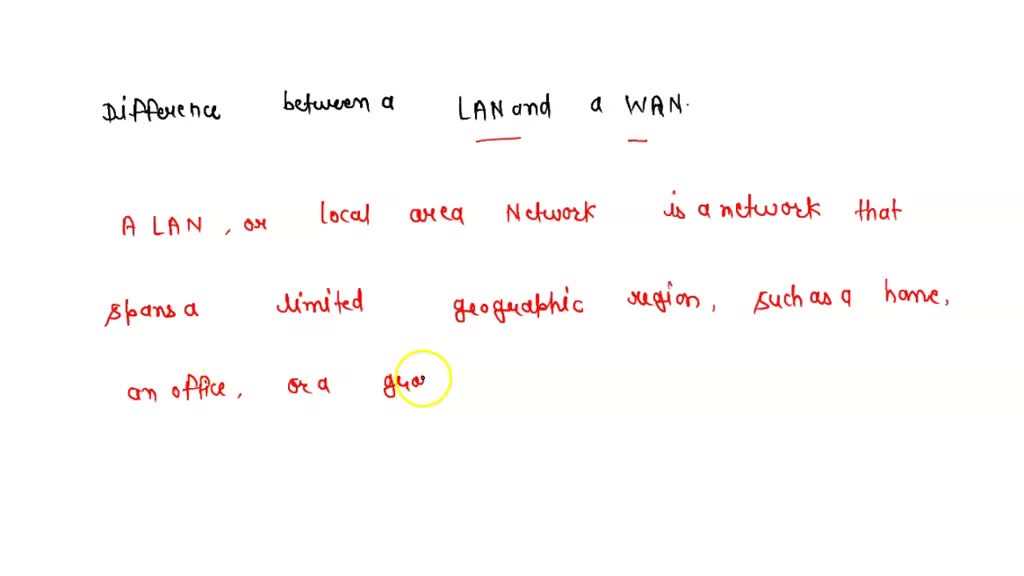 Difference between a LAN and a WAN.
A LAN, or local area Network is a network that
spans a limited geographic region, such as a home,
an office, or a